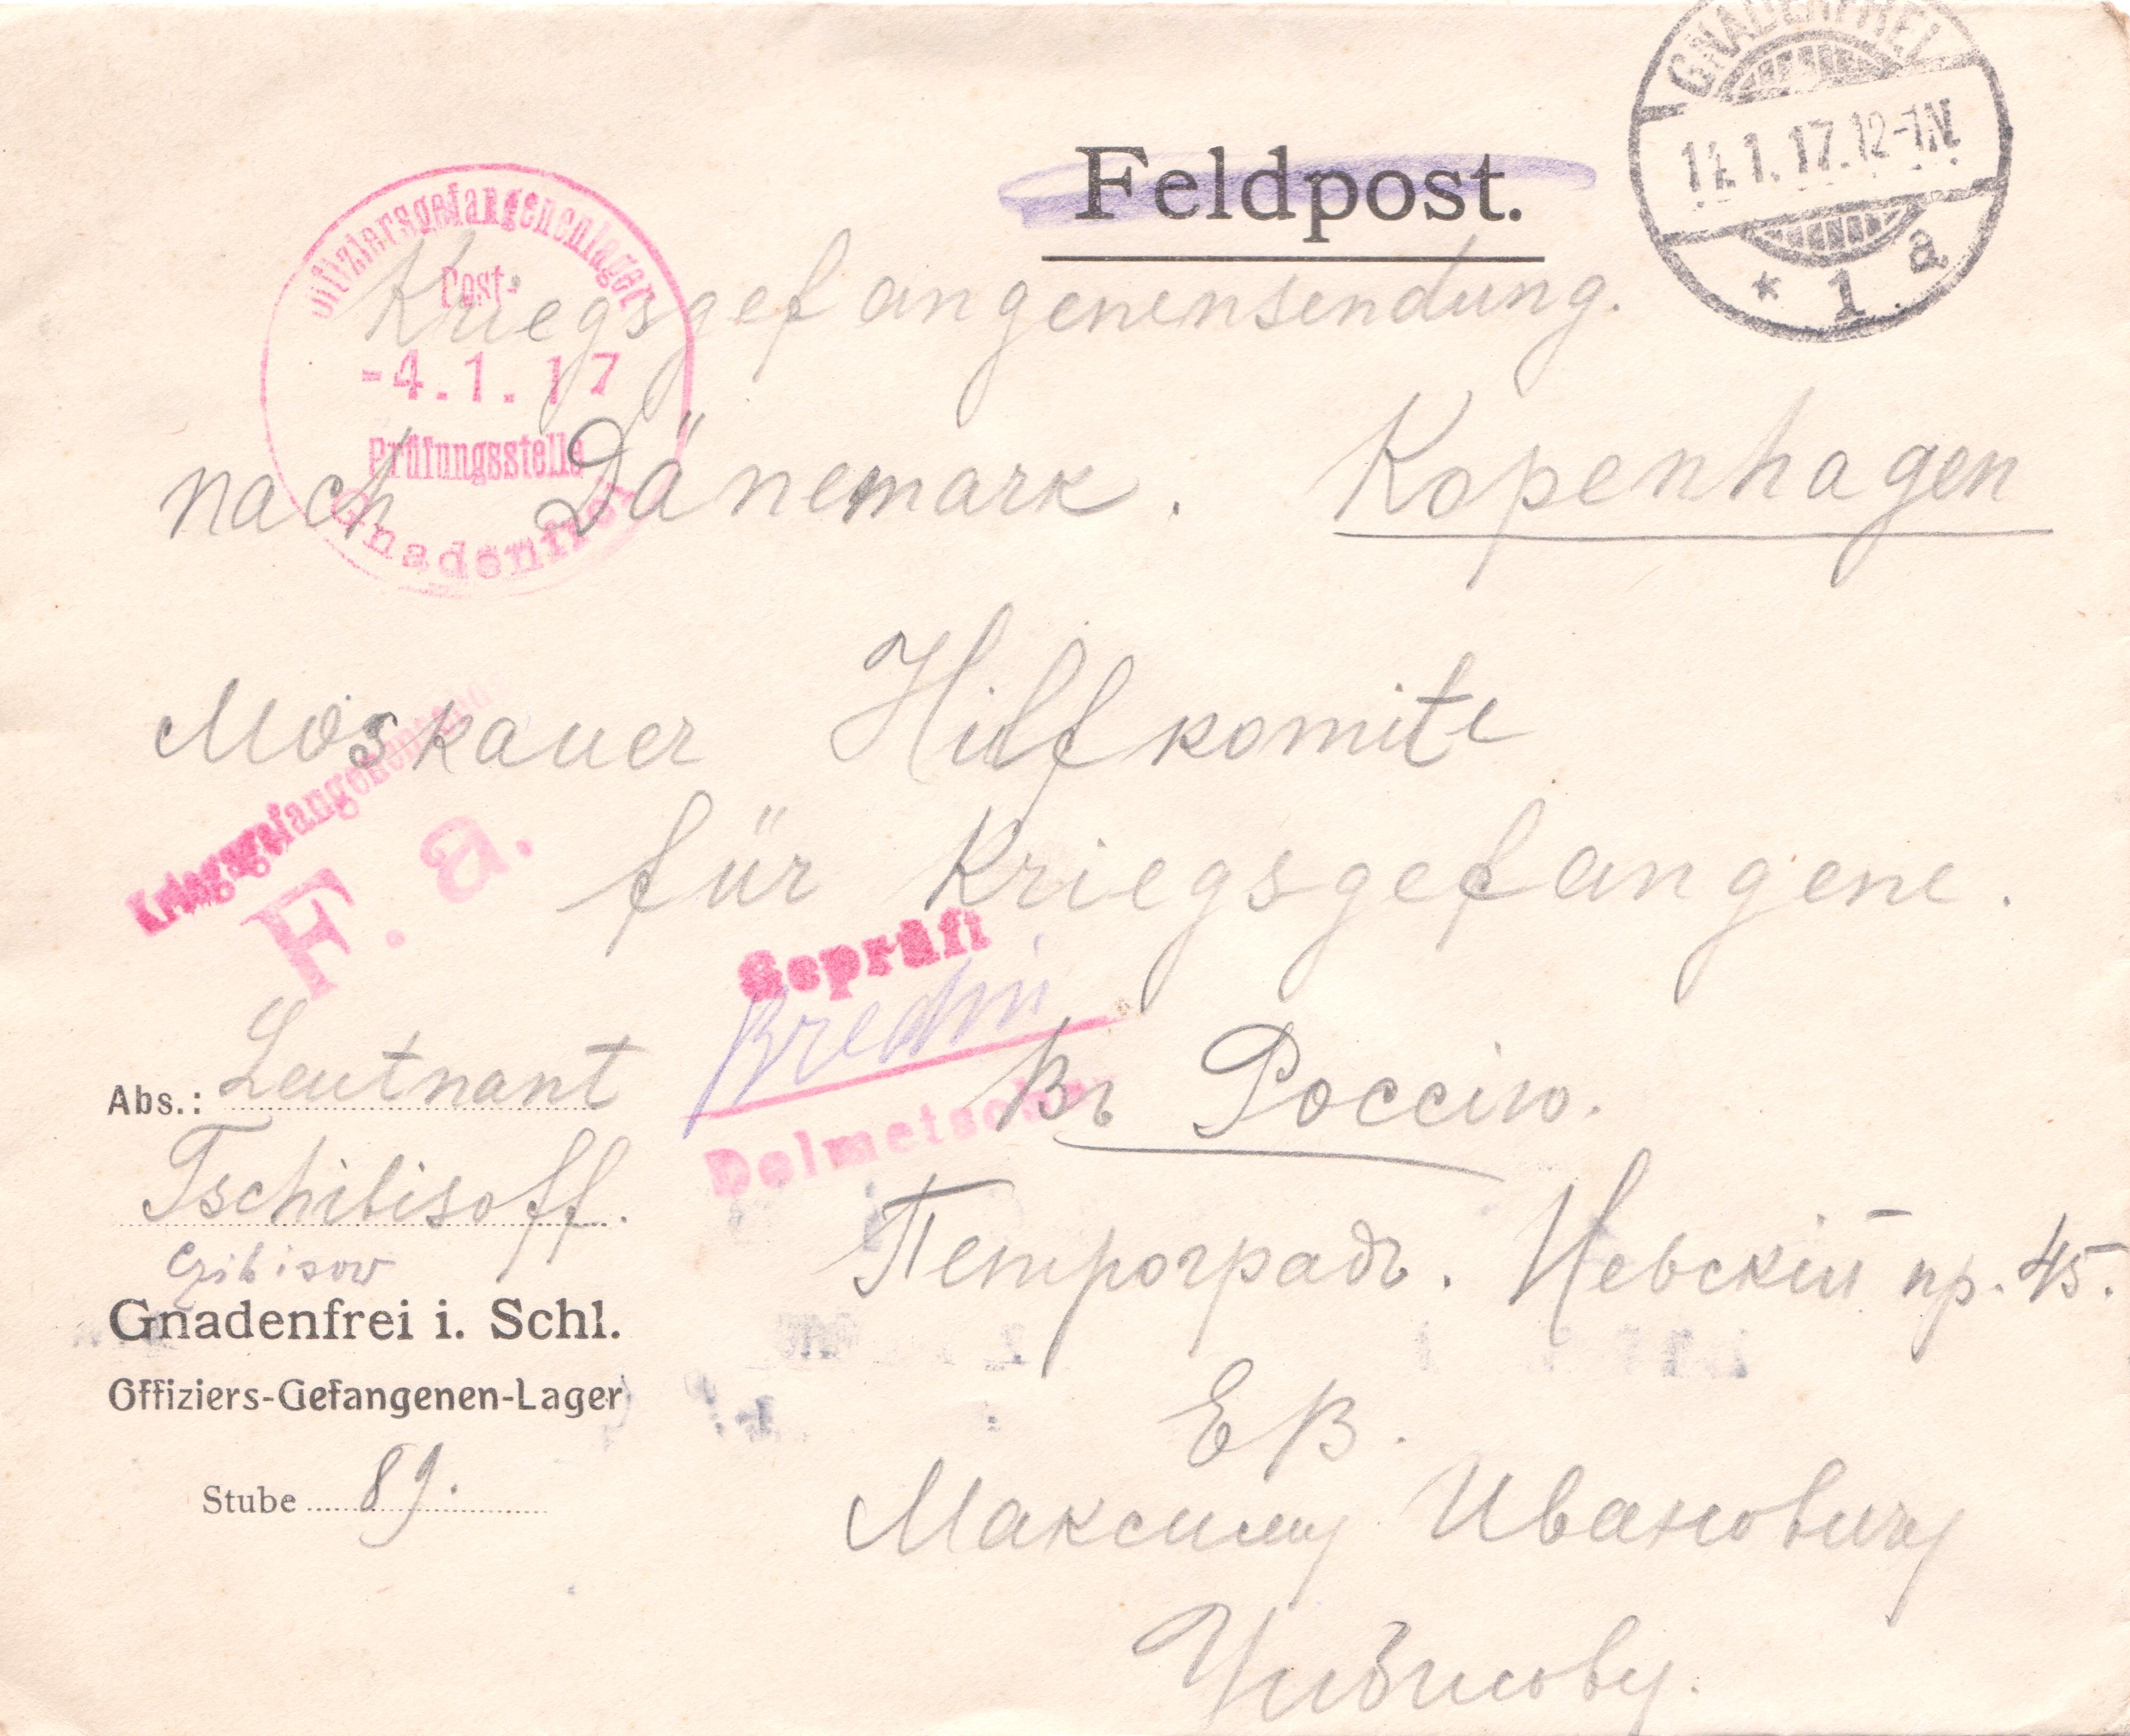 GNADENFREI
Feldpost.
1.17.12-1N.
* 1 a
Offiziersgefangenenlager
Post-
-4.1.17
Prüfungsstelle
Gnadenfrei
Kriegsgefangenensendung.
nach Dänemark. Kopenhagen
Moskauer Hilfkomite
für Kriegsgefangene.
Kriegsgefangenensendung
F. a.
Geprüft
Dolmetscher
Въ Россію.
Abs.: Leutnant
Tschibisoff.
Czibisow
Петроградъ. Невскій пр. 45.
Gnadenfrei i. Schl.
Offiziers-Gefangenen-Lager
Stube 89.
ЕВ.
Максиму Ивановичу
Чибисову.